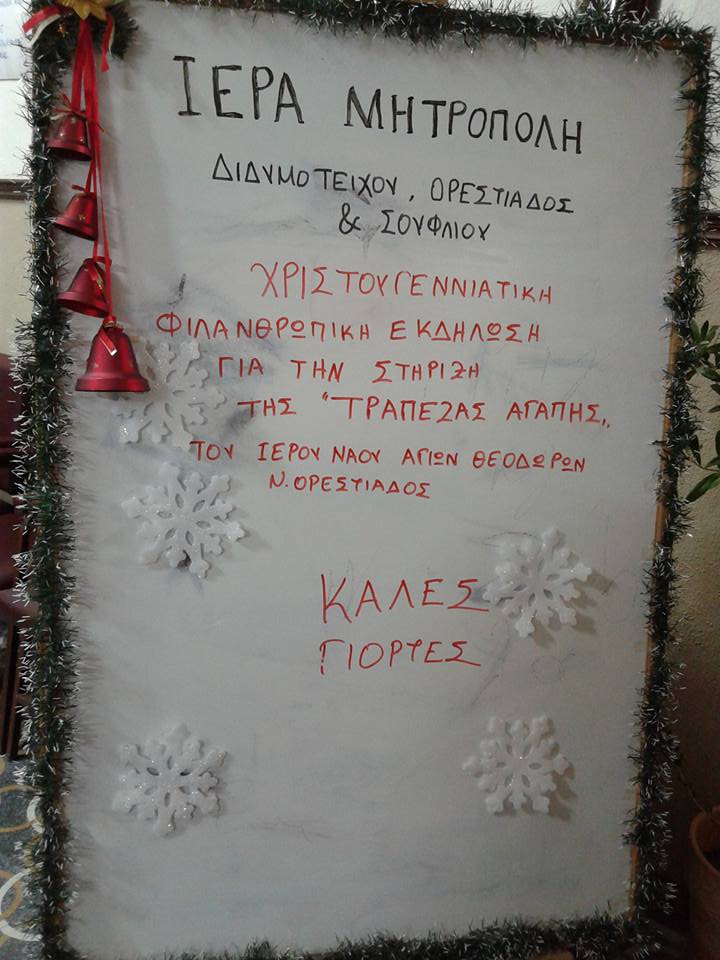 ΙΕΡΑ ΜΗΤΡΟΠΟΛΗ
ΔΙΔΥΜΟΤΕΙΧΟΥ, ΟΡΕΣΤΙΑΔΟΣ
& ΣΟΥΦΛΙΟΥ
ΧΡΙΣΤΟΥΓΕΝΝΙΑΤΙΚΗ
ΦΙΛΑΝΘΡΩΠΙΚΗ ΕΚΔΗΛΩΣΗ
ΓΙΑ ΤΗΝ ΣΤΗΡΙΞΗ
ΤΗΣ "ΤΡΑΠΕΖΑΣ ΑΓΑΠΗΣ„
ΤΟΥ ΙΕΡΟΥ ΝΑΟΥ ΑΓΙΩΝ ΘΕΟΔΩΡΩΝ
Ν. ΟΡΕΣΤΙΑΔΟΣ
ΚΑΛΕΣ
ΓΙΟΡΤΕΣ